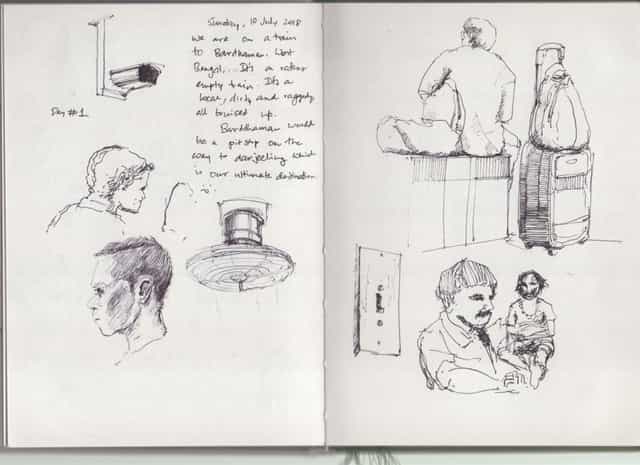 Sunday, 10 July 2018
We are on a train
to Bardhaman. West
Bengal... It's a rather
empty train. It's a
local, dirty and raggedy
all bruised up.
Barddhaman would
be a pitstop on the
way to darjeeling which
is our ultimate destination
Day #1